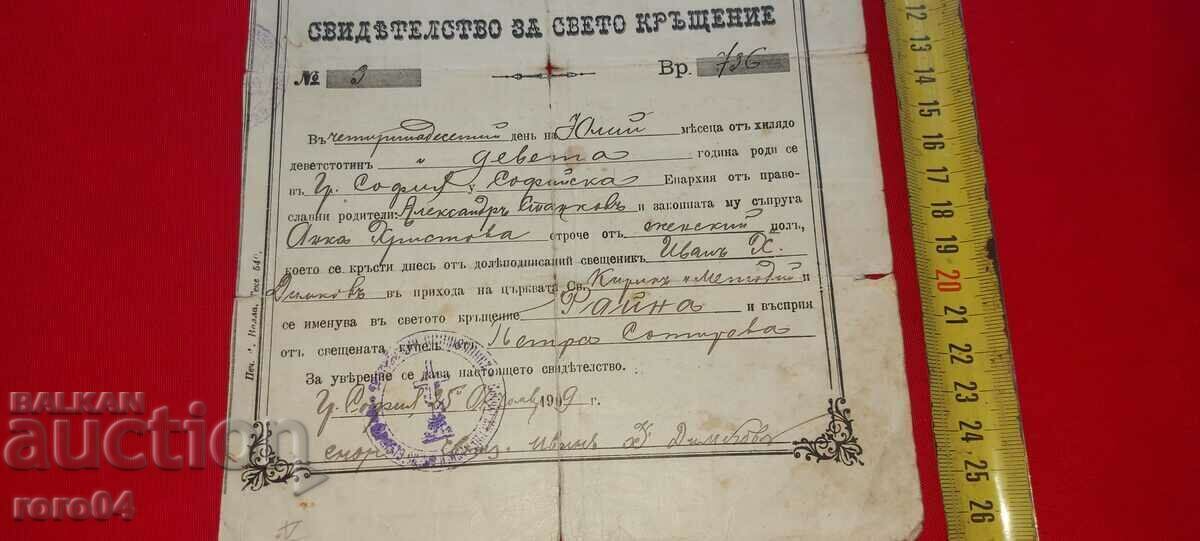 СВИДѢТЕЛСТВО ЗА СВЕТО КРЪЩЕНИЕ
№ 3 Вр. 736
Въ четиринадесетий день на Юлий мѣсеца отъ хилядо
деветстотин „ девета година роди се
въ гр. София у Софийска Епархия отъ право-
славни родители: Александръ Станковъ и законната му съпруга
Анка Христова строче отъ женский полъ,
което се кръсти днесь отъ долѣподписаний свещеникъ Иванъ Х.
Димковъ въ прихода на църквата Св. Кирилъ и Методий и
се именува въ светото кръщение Райна и въсприя
отъ свещената купель отъ Петра Сотирова
За увѣрение се дава настоящето свидѣтелство.
гр. София 25 1909 г.
Иванъ Х Димковъ
Печ.
BALKAN
auction
roro04
12
13
14
15
16
17
18
19
20
21
22
23
24
25
26